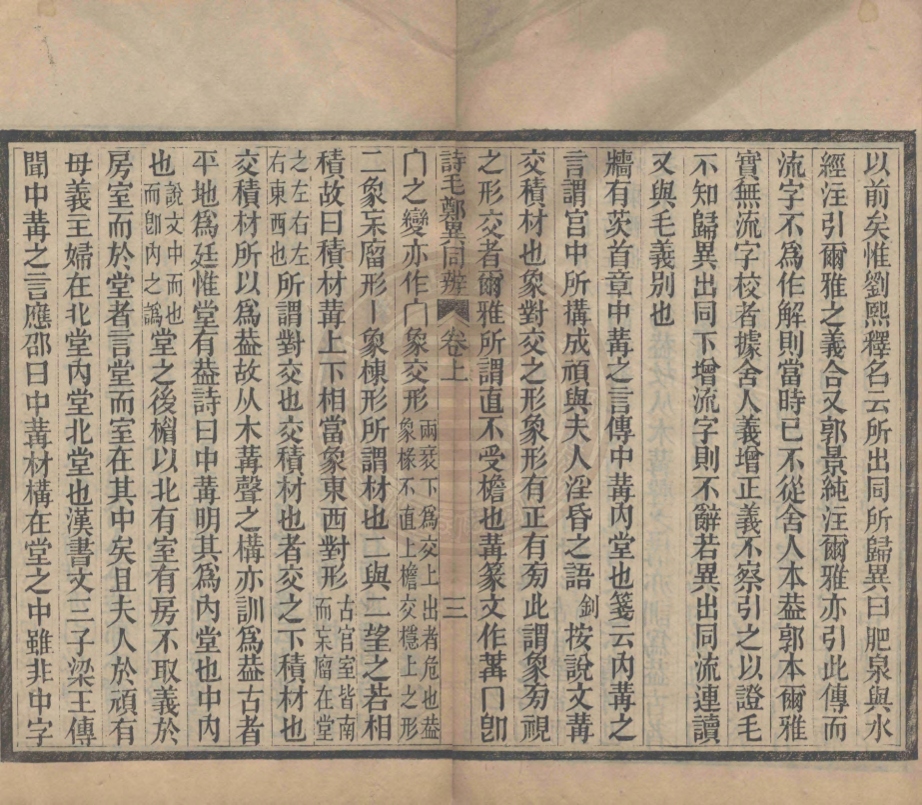 以前矣惟劉熙釋名云所出同所歸異曰肥泉與水
經注引爾雅之義合又郭景純注爾雅亦引此傳而
流字不爲作解則當時已不從舍人本葢郭本爾雅
實無流字校者據舍人義增正義不察引之以證毛
不知歸異出同下增流字則不辭若異出同流連讀
又與毛義別也
牆有茨首章中冓之言傳中冓內堂也箋云內冓之
言謂宮中所構成頑與夫人淫昏之語釗按說文冓
交積材也象對交之形象形有正有匇此謂象匇視
之形交者爾雅所謂直不受檐也冓篆文作冓冂卽
詩毛鄭異同辨 卷上 三
冂之變亦作冂象交形兩亥下爲交上出者危也葢象椽不直上檐交檼上之形
二象杗廇形丨象棟形所謂材也二與二望之若相
積故曰積材冓上下相當象東西對形古宮室皆南而杗廇在堂
之左右左右東西也所謂對交也交積材也者交之下積材也
交積材所以爲葢故从木冓聲之構亦訓爲葢古者
平地爲廷惟堂有葢詩曰中冓明其爲內堂也中內
也說文中而也而卽內之譌堂之後楣以北有室有房不取義於
房室而於堂者言堂而室在其中矣且夫人於頑有
母義主婦在北堂內堂北堂也漢書文三子梁王傳
聞中冓之言應邵曰中冓材構在堂之中雖非中字